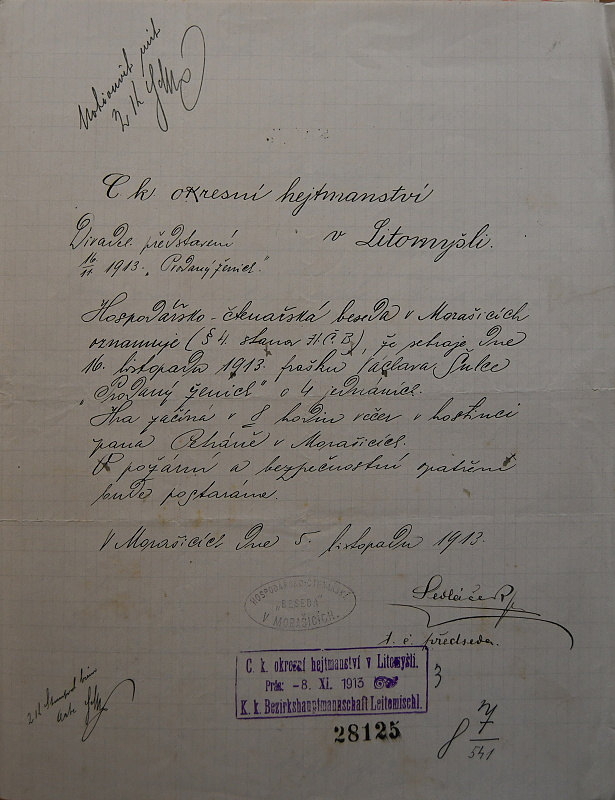 C. k. okresní hejtmanství
v Litomyšli.
Divadel. představení
16/11 1913. „Prodaný ženich."
Hospodářsko-čtenářská beseda v Morašicích
oznamuje (§ 4. stanov H.Č.B.), že sehraje dne
16. listopadu 1913. frašku Václava Šulce
„Prodaný ženich" o 4 jednáních.
Hra začíná v 8 hodin večer v hostinci
pana v Morašicích.
O požární a bezpečnostní opatření
bude postaráno.
V Morašicích dne 5. listopadu 1913.
HOSPODÁŘSKO-ČTENÁŘSKÁ
„BESEDA"
V MORAŠICÍCH.
Sedláček
t. č. předseda.
C. k. okresní hejtmanství v Litomyšli.
Präs: -8. XI. 1913
K. k. Bezirkshauptmannschaft Leitomischl.
28125
3
8 7/541